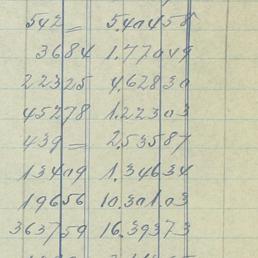 542 = 5.40458
3684 1.77049
22325 4.62830
45278 1.22303
439 = 2.53587
13409 1.34634
19656 10.30103
363759 16.39373